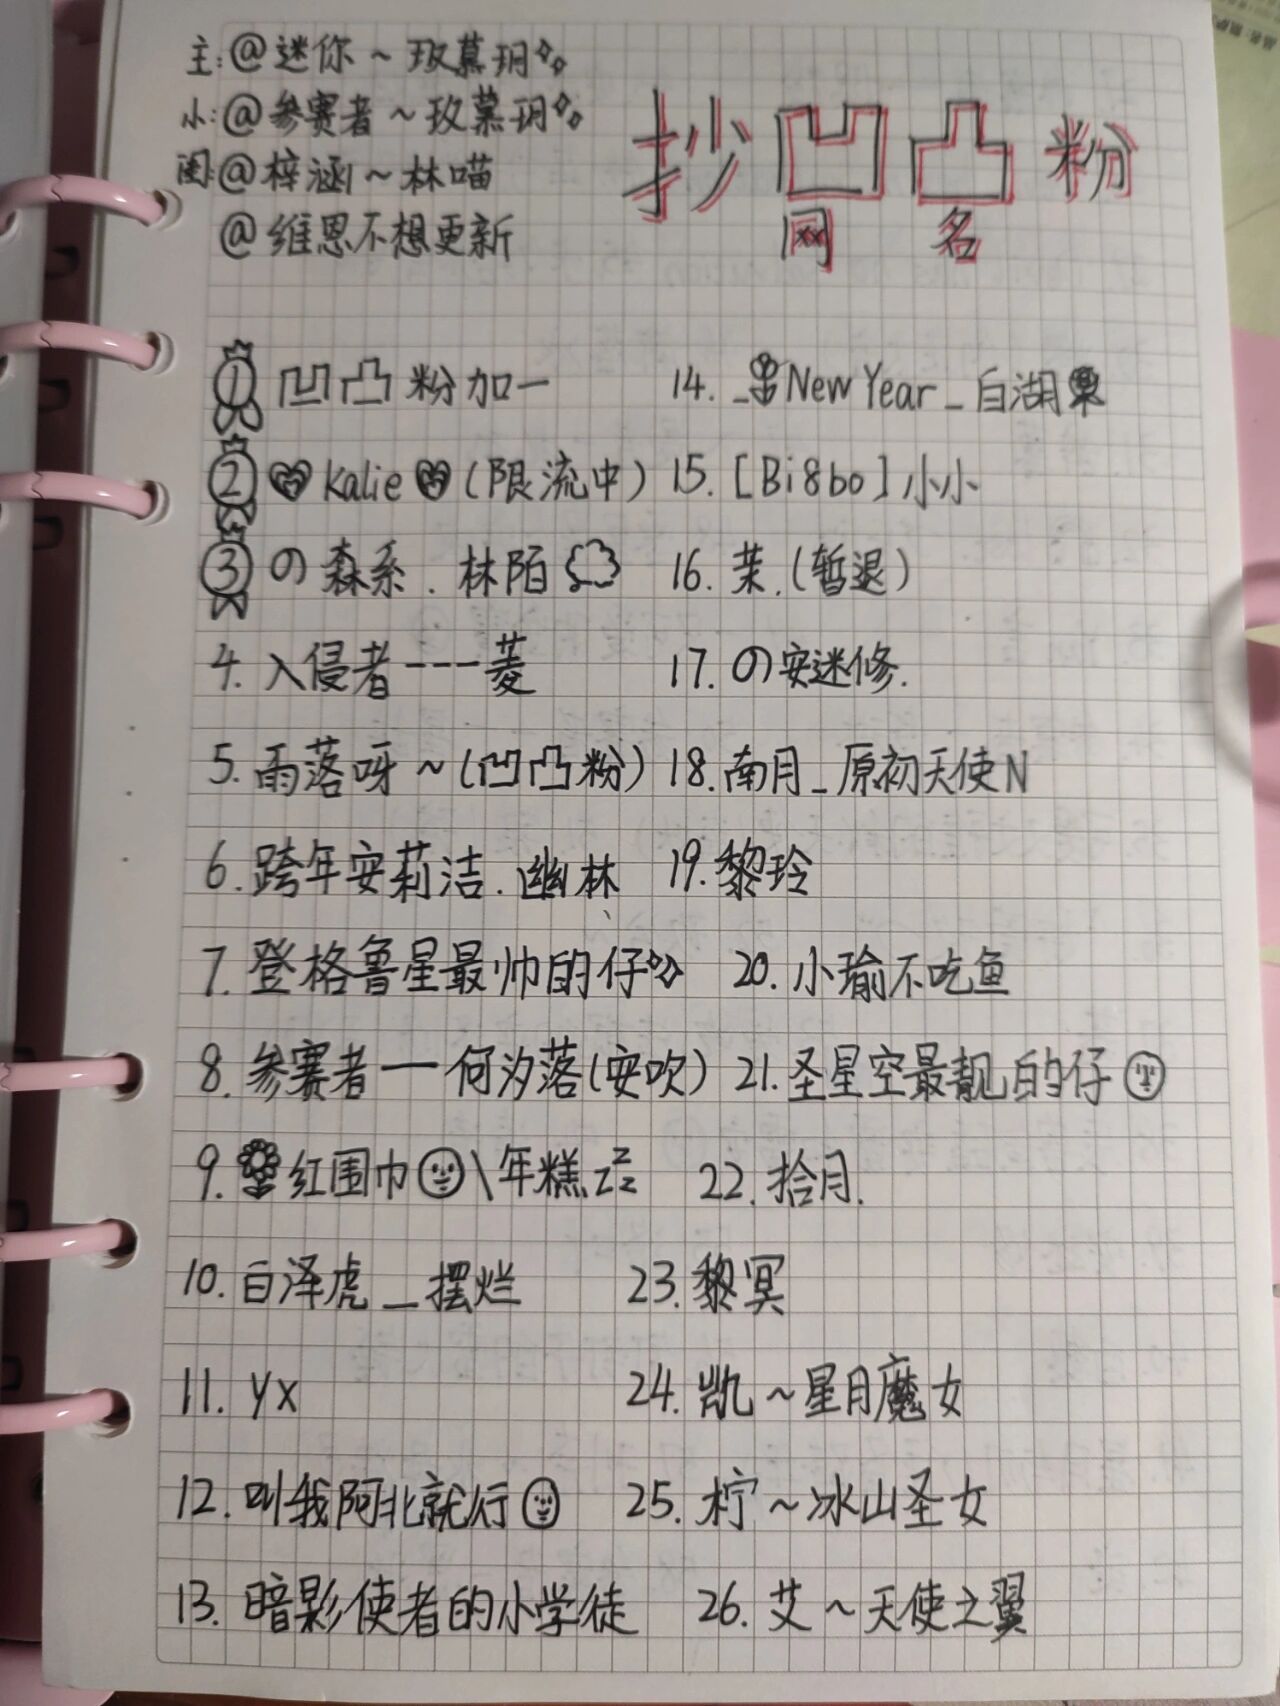 主:@迷你~玫慕玥
小:@参赛者~玫慕玥
闺:@梓涵~林喵
@维恩不想更新
抄凹凸粉
网名
① 凹凸粉加一
② Kalie (限流中)
③ の森系.林陌
4. 入侵者---菱
5. 雨落呀~(凹凸粉)
6. 跨年安莉洁.幽林
7. 登格鲁星最帅的仔
8. 参赛者一何汐落(安吹)
9. 红围巾\年糕zzz
10. 白泽虎_摆烂
11. yx
12. 叫我阿北就行
13. 暗影使者的小学徒
14. _New Year_白湖
15. [Bi8bo]小小
16. 茉.(暂退)
17. の安迷修.
18. 南月_原初天使N
19. 黎玲
20. 小瑜不吃鱼
21. 圣星空最靓的仔
22. 拾月.
23. 黎冥
24. 凯~星月魔女
25. 柠~冰山圣女
26. 艾~天使之翼